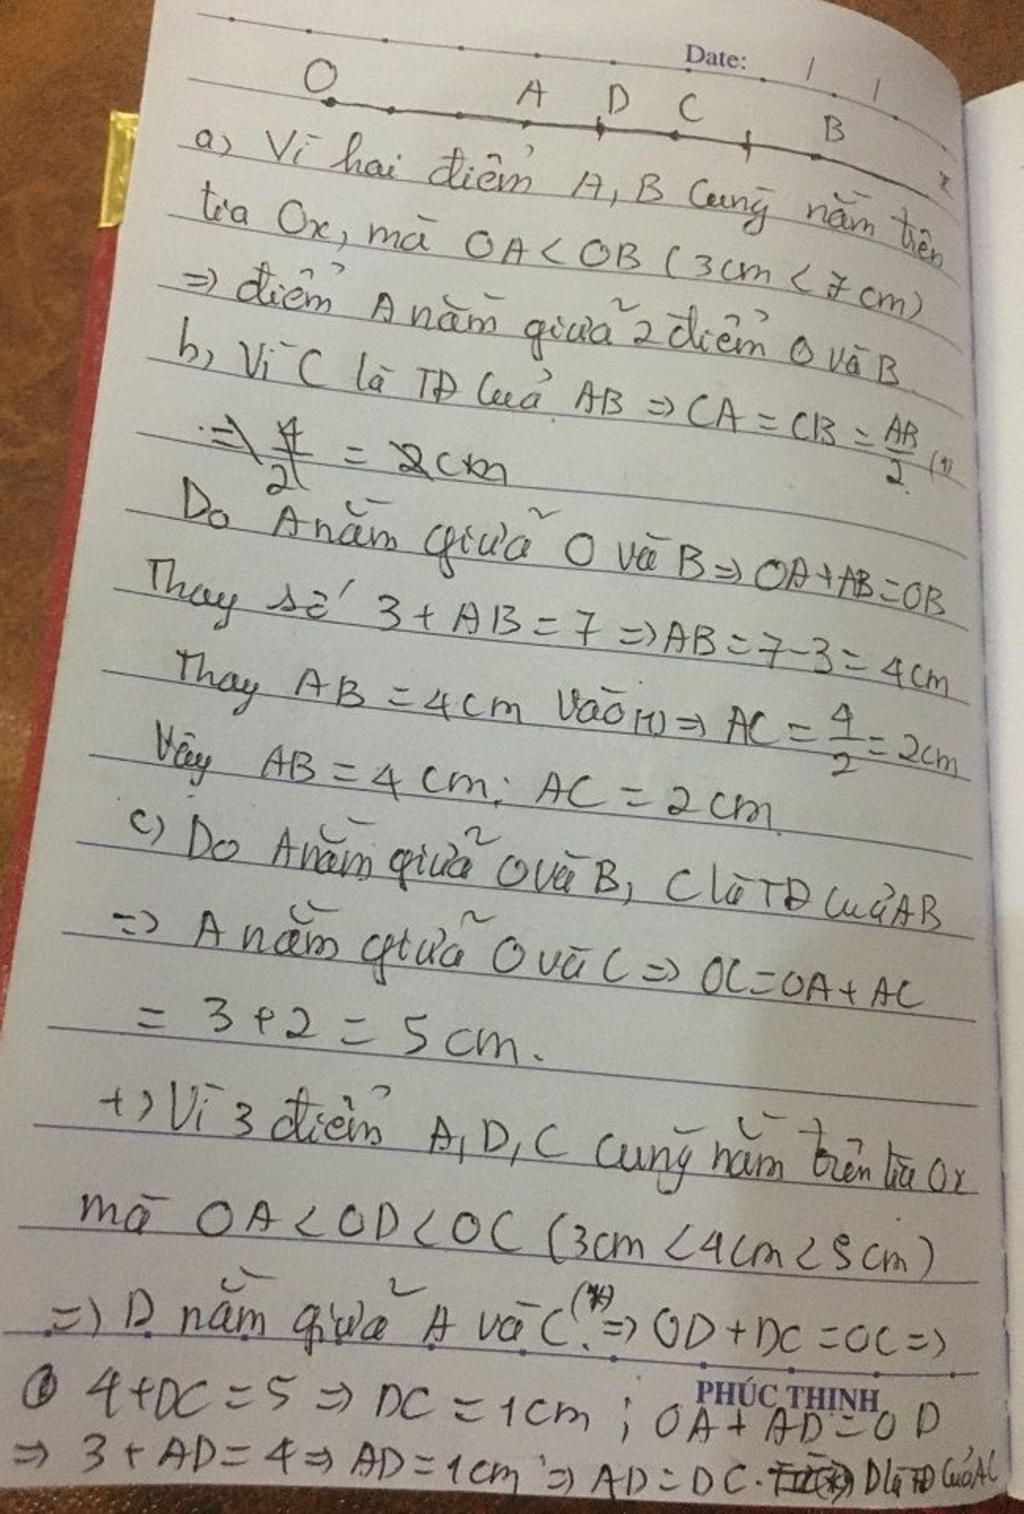 Date: / /
O A D C B x
a) Vì hai điểm A, B cùng nằm trên
tia Ox, mà OA < OB (3cm < 7cm)
=> điểm A nằm giữa 2 điểm O và B
b, Vì C là TĐ của AB => CA = CB = AB/2 (1)
=> 4/2 = 2cm
Do A nằm giữa O và B => OA + AB = OB
Thay số 3 + AB = 7 => AB = 7 - 3 = 4cm
Thay AB = 4cm vào (1) => AC = 4/2 = 2cm
Vậy AB = 4cm; AC = 2cm.
c) Do A nằm giữa O và B, C là TĐ của AB
=> A nằm giữa O và C => OC = OA + AC
= 3 + 2 = 5cm.
+) Vì 3 điểm A, D, C cùng nằm trên tia Ox
mà OA < OD < OC (3cm < 4cm < 5cm)
=> D nằm giữa A và C. (*) => OD + DC = OC =>
PHÚC THỊNH
4 + DC = 5 => DC = 1cm; OA + AD = OD
=> 3 + AD = 4 => AD = 1cm => AD = DC. D là TĐ của AC